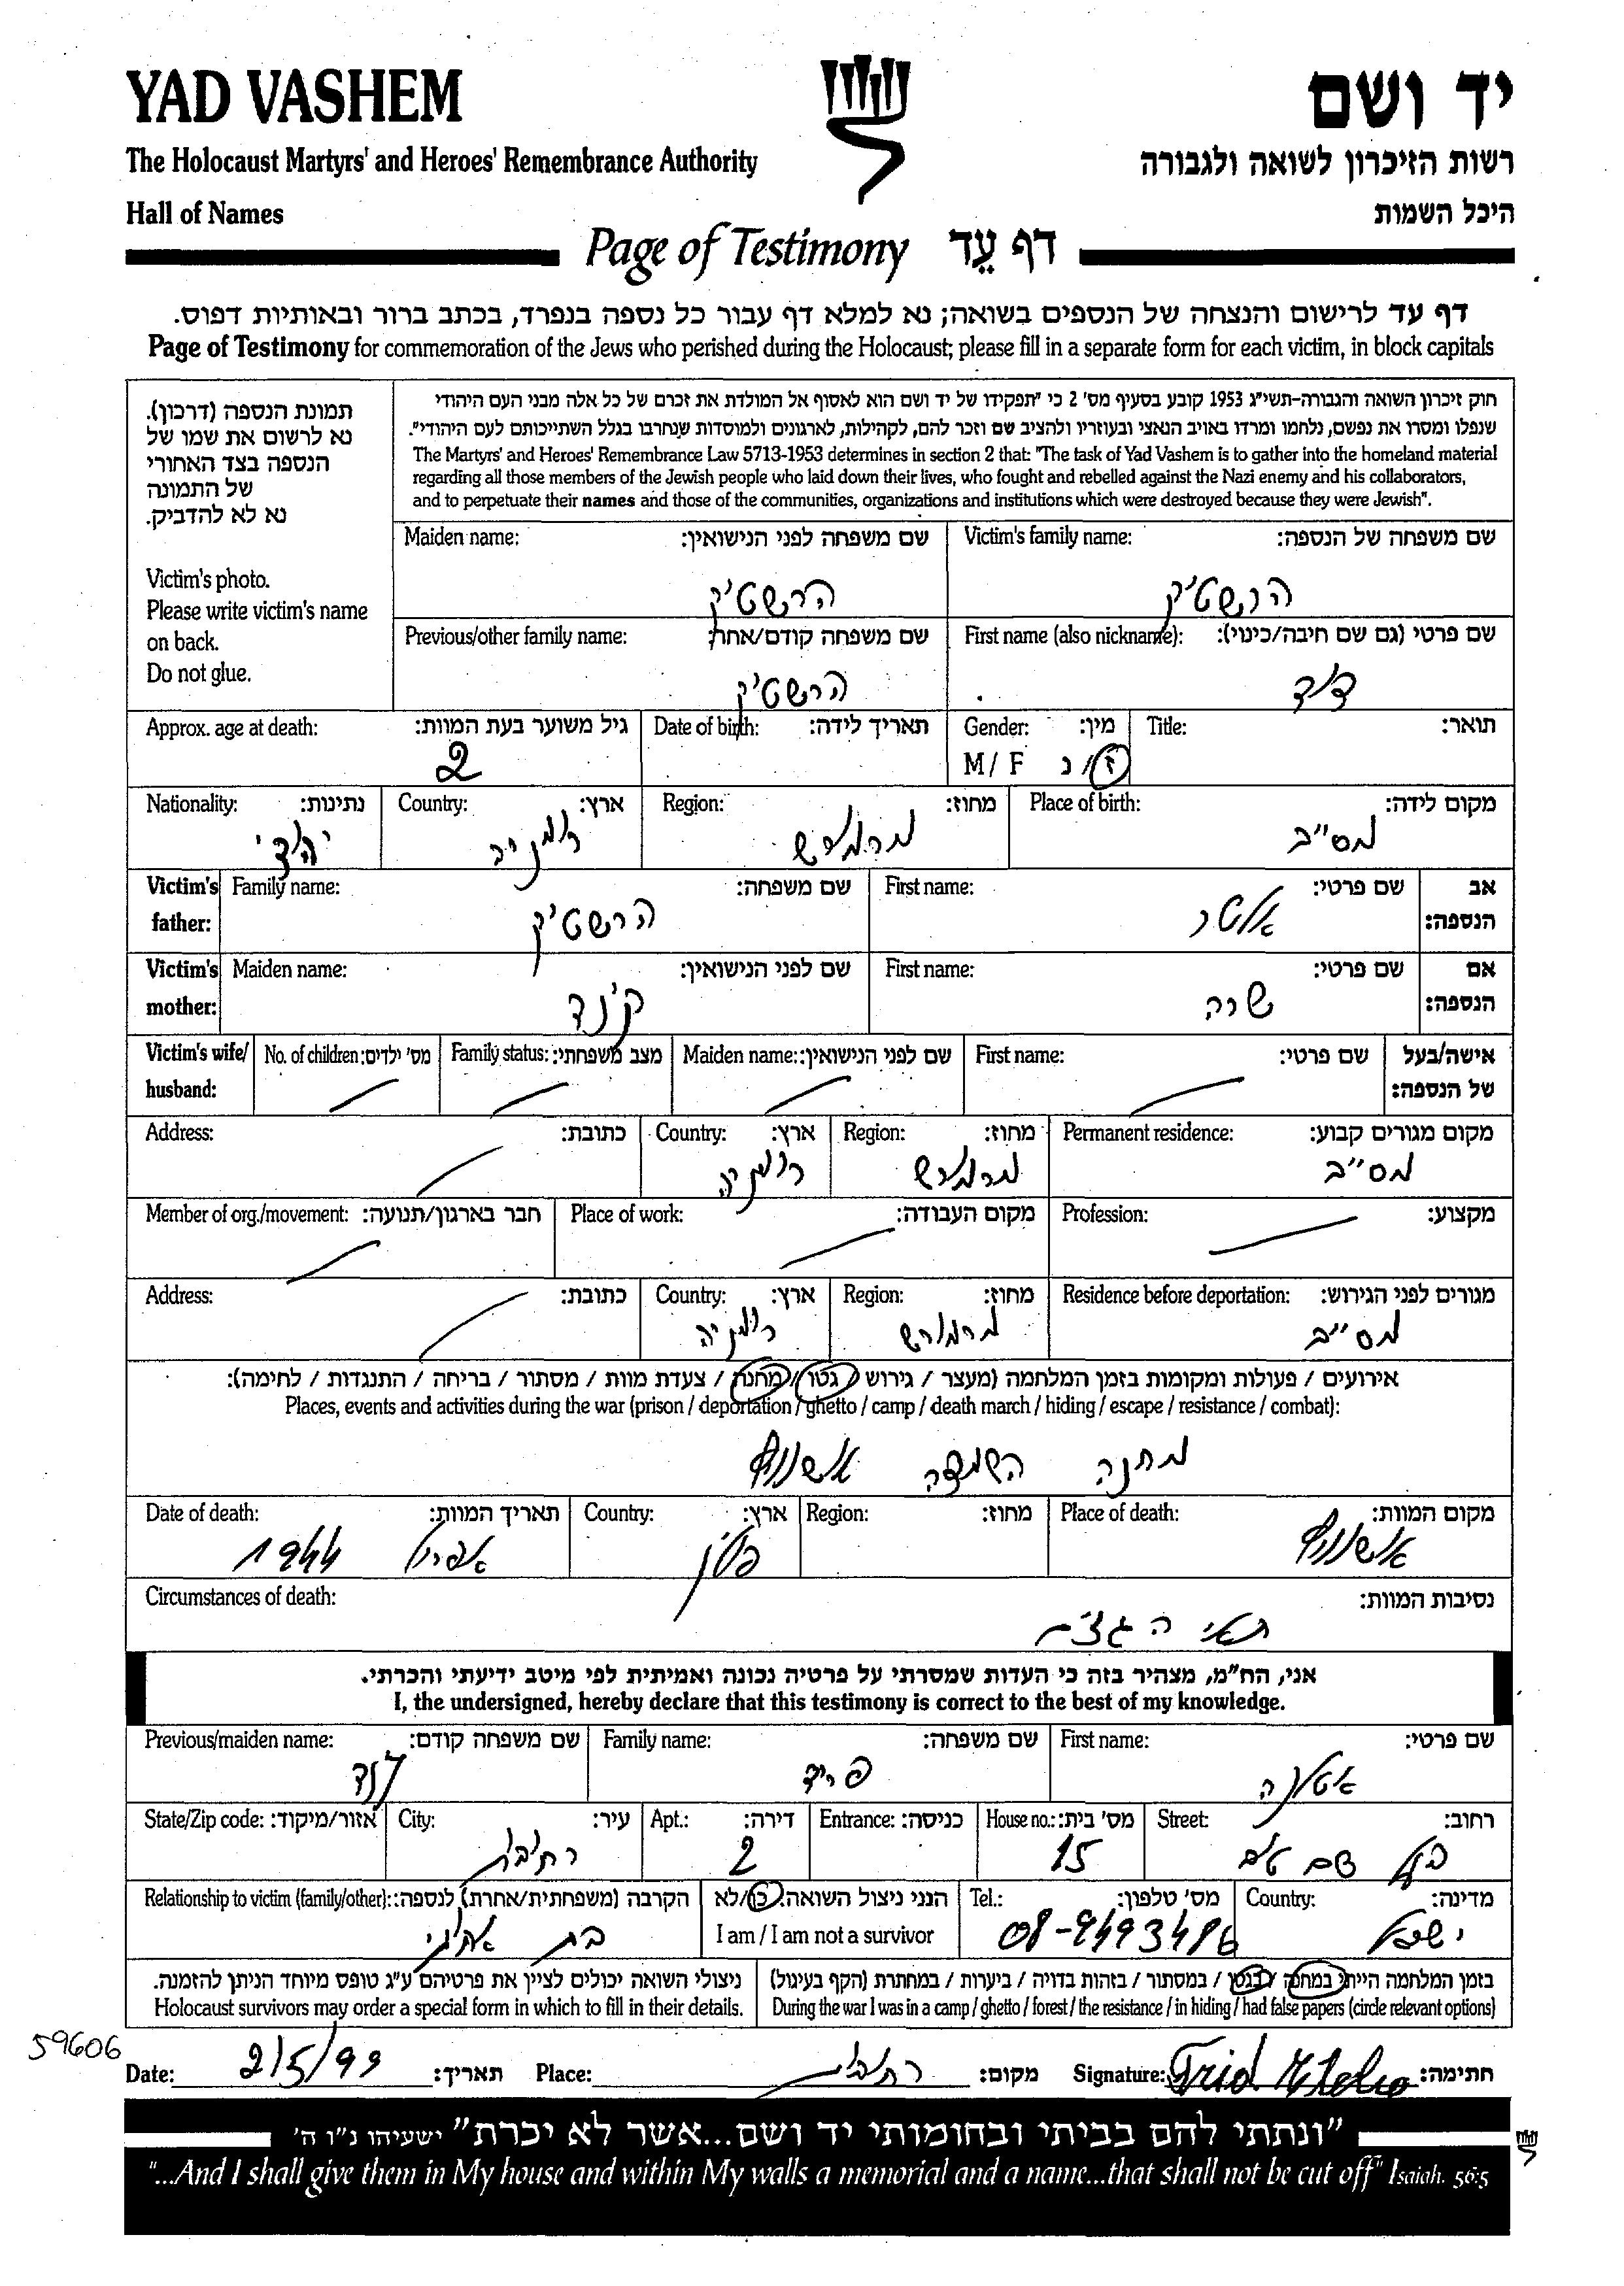 YAD VASHEM
יד ושם
The Holocaust Martyrs' and Heroes' Remembrance Authority
רשות הזיכרון לשואה ולגבורה
Hall of Names
היכל השמות
Page of Testimony דף עֵד
דף עד לרישום והנצחה של הנספים בשואה; נא למלא דף עבור כל נספה בנפרד, בכתב ברור ובאותיות דפוס.
Page of Testimony for commemoration of the Jews who perished during the Holocaust; please fill in a separate form for each victim, in block capitals
חוק זיכרון השואה והגבורה-תשי"ג 1953 קובע בסעיף מס' 2 כי "תפקידו של יד ושם הוא לאסוף אל המולדת את זכרם של כל אלה מבני העם היהודי
שנפלו ומסרו את נפשם, נלחמו ומרדו באויב הנאצי ובעוזריו ולהציב שם וזכר להם, לקהילות, לארגונים ולמוסדות שנחרבו בגלל השתייכותם לעם היהודי".
The Martyrs' and Heroes' Remembrance Law 5713-1953 determines in section 2 that: "The task of Yad Vashem is to gather into the homeland material
regarding all those members of the Jewish people who laid down their lives, who fought and rebelled against the Nazi enemy and his collaborators,
and to perpetuate their names and those of the communities, organizations and institutions which were destroyed because they were Jewish".
תמונת הנספה (דרכון).
נא לרשום את שמו של
הנספה בצד האחורי
של התמונה
נא לא להדביק.
Victim's photo.
Please write victim's name
on back.
Do not glue.
שם משפחה של הנספה: Victim's family name:
הרשטיק
שם משפחה לפני הנישואין: Maiden name:
הרשטיק
שם פרטי (גם שם חיבה/כינוי): First name (also nickname):
דוד
שם משפחה קודם/אחר: Previous/other family name:
הרשטיק
תואר: Title:
מין: Gender:
ז/נ M/F
תאריך לידה: Date of birth:
גיל משוער בעת המוות: Approx. age at death:
2
מקום לידה: Place of birth:
מס"ב
מחוז: Region:
מרמורש
ארץ: Country:
רומניה
נתינות: Nationality:
יהודי
אב הנספה: Victim's father:
שם פרטי: First name:
אלטר
שם משפחה: Family name:
הרשטיק
אם הנספה: Victim's mother:
שם פרטי: First name:
שרה
שם לפני הנישואין: Maiden name:
אישה/בעל של הנספה: Victim's wife/husband:
שם פרטי: First name:
שם לפני הנישואין: Maiden name:
מצב משפחתי: Family status:
מס' ילדים: No. of children:
מקום מגורים קבוע: Permanent residence:
מס"ב
מחוז: Region:
מרמורש
ארץ: Country:
רומניה
כתובת: Address:
מקצוע: Profession:
מקום העבודה: Place of work:
חבר בארגון/תנועה: Member of org./movement:
מגורים לפני הגירוש: Residence before deportation:
מס"ב
מחוז: Region:
מרמורש
ארץ: Country:
רומניה
כתובת: Address:
אירועים / פעולות ומקומות בזמן המלחמה (מעצר / גירוש / גטו / מחנה / צעדת מוות / מסתור / בריחה / התנגדות / לחימה):
Places, events and activities during the war (prison / deportation / ghetto / camp / death march / hiding / escape / resistance / combat):
מחנה השמדה אשוויץ
מקום המוות: Place of death:
אשוויץ
מחוז: Region:
ארץ: Country:
פולין
תאריך המוות: Date of death:
אפריל 1944
נסיבות המוות: Circumstances of death:
תאי הגזים
אני, הח"מ, מצהיר בזה כי העדות שמסרתי על פרטיה נכונה ואמיתית לפי מיטב ידיעתי והכרתי.
I, the undersigned, hereby declare that this testimony is correct to the best of my knowledge.
שם פרטי: First name:
שם משפחה: Family name:
פריד
שם משפחה קודם: Previous/maiden name:
רחוב: Street:
בעל שם טוב
מס' בית: House no.:
15
כניסה: Entrance:
דירה: Apt.:
2
עיר: City:
רחובות
אזור/מיקוד: State/Zip code:
מדינה: Country:
ישראל
מס' טלפון: Tel.:
08-9493486
הנני ניצול השואה: כן/לא
I am / I am not a survivor
הקרבה (משפחתית/אחרת) לנספה: Relationship to victim (family/other):
בת אחותי
בזמן המלחמה הייתי במחנה / בגטו / במסתור / בזהות בדויה / ביערות / במחתרת (הקף בעיגול)
During the war I was in a camp / ghetto / forest / the resistance / in hiding / had false papers (circle relevant options)
ניצולי השואה יכולים לציין את פרטיהם ע"ג טופס מיוחד הניתן להזמנה.
Holocaust survivors may order a special form in which to fill in their details.
59606
Date: 2/5/99 תאריך: Place: רחובות מקום: Signature: Frid חתימה:
"ונתתי להם בביתי ובחומותי יד ושם...אשר לא יכרת" ישעיהו נ"ו ה'
"...And I shall give them in My house and within My walls a memorial and a name...that shall not be cut off" Isaiah. 56:5